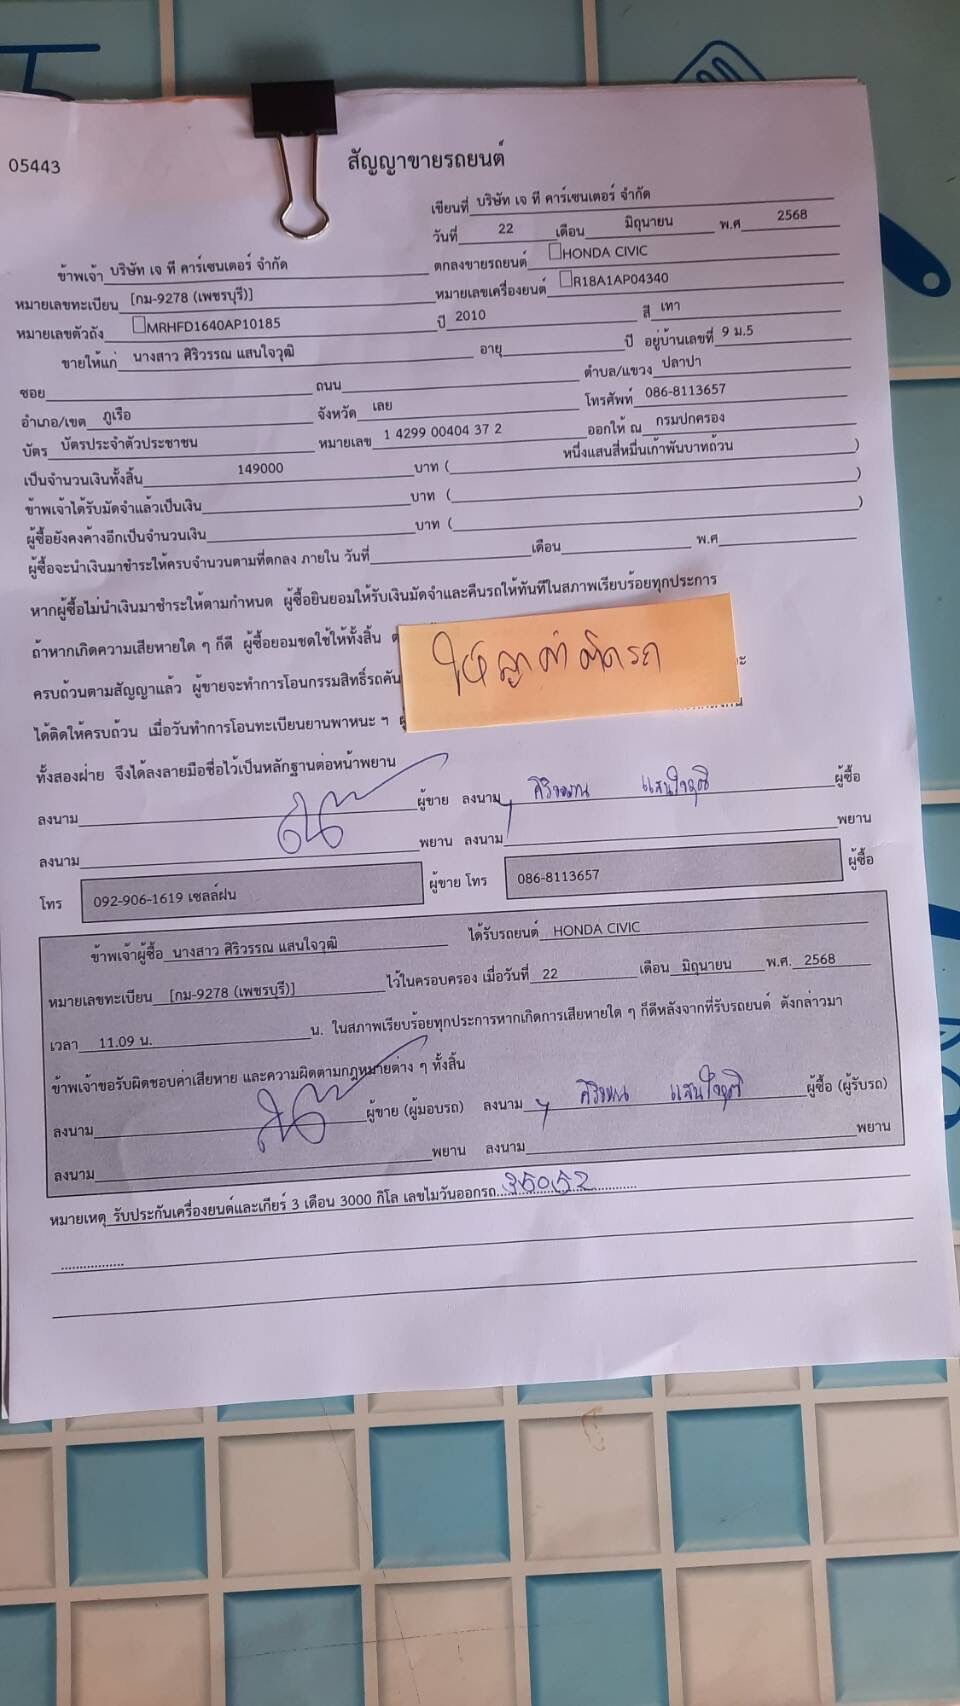 05443
สัญญาขายรถยนต์
เขียนที่ บริษัท เจ ที คาร์เซนเตอร์ จำกัด
วันที่ 22 เดือน มิถุนายน พ.ศ 2568
ข้าพเจ้า บริษัท เจ ที คาร์เซนเตอร์ จำกัด ตกลงขายรถยนต์ HONDA CIVIC
หมายเลขทะเบียน [กม-9278 (เพชรบุรี)] หมายเลขเครื่องยนต์ R18A1AP04340
หมายเลขตัวถัง MRHFD1640AP10185 ปี 2010 สี เทา
ขายให้แก่ นางสาว ศิริวรรณ แสนใจวุฒิ อายุ ปี อยู่บ้านเลขที่ 9 ม.5
ซอย ถนน ตำบล/แขวง ปลาบ่า
อำเภอ/เขต ภูเรือ จังหวัด เลย โทรศัพท์ 086-8113657
บัตร บัตรประจำตัวประชาชน หมายเลข 1 4299 00404 37 2 ออกให้ ณ กรมปกครอง
เป็นจำนวนเงินทั้งสิ้น 149000 บาท ( หนึ่งแสนสี่หมื่นเก้าพันบาทถ้วน )
ข้าพเจ้าได้รับมัดจำแล้วเป็นเงิน บาท ( )
ผู้ซื้อยังคงค้างอีกเป็นจำนวนเงิน บาท ( )
ผู้ซื้อจะนำเงินมาชำระให้ครบจำนวนตามที่ตกลง ภายใน วันที่ เดือน พ.ศ
หากผู้ซื้อไม่นำเงินมาชำระให้ตามกำหนด ผู้ซื้อยินยอมให้รับเงินมัดจำและคืนรถให้ทันทีในสภาพเรียบร้อยทุกประการ
ถ้าหากเกิดความเสียหายใด ๆ ก็ดี ผู้ซื้อยอมชดใช้ให้ทั้งสิ้น
ครบถ้วนตามสัญญาแล้ว ผู้ขายจะทำการโอนกรรมสิทธิ์รถคัน
ได้ติดให้ครบถ้วน เมื่อวันทำการโอนทะเบียนยานพาหนะ ฯ
ทั้งสองฝ่าย จึงได้ลงลายมือชื่อไว้เป็นหลักฐานต่อหน้าพยาน
ลงนาม ผู้ขาย ลงนาม ศิริวรรณ แสนใจวุฒิ ผู้ซื้อ
ลงนาม พยาน ลงนาม พยาน
โทร 092-906-1619 เซลล์ฝน ผู้ขาย โทร 086-8113657 ผู้ซื้อ
ข้าพเจ้าผู้ซื้อ นางสาว ศิริวรรณ แสนใจวุฒิ ได้รับรถยนต์ HONDA CIVIC
หมายเลขทะเบียน [กม-9278 (เพชรบุรี)] ไว้ในครอบครอง เมื่อวันที่ 22 เดือน มิถุนายน พ.ศ. 2568
เวลา 11.09 น. น. ในสภาพเรียบร้อยทุกประการหากเกิดการเสียหายใด ๆ ก็ดีหลังจากที่รับรถยนต์ ดังกล่าวมา
ข้าพเจ้าขอรับผิดชอบค่าเสียหาย และความผิดตามกฎหมายต่าง ๆ ทั้งสิ้น
ลงนาม ผู้ขาย (ผู้มอบรถ) ลงนาม ศิริวรรณ แสนใจวุฒิ ผู้ซื้อ (ผู้รับรถ)
ลงนาม พยาน ลงนาม พยาน
หมายเหตุ รับประกันเครื่องยนต์และเกียร์ 3 เดือน 3000 กิโล เลขไมวันออกรถ